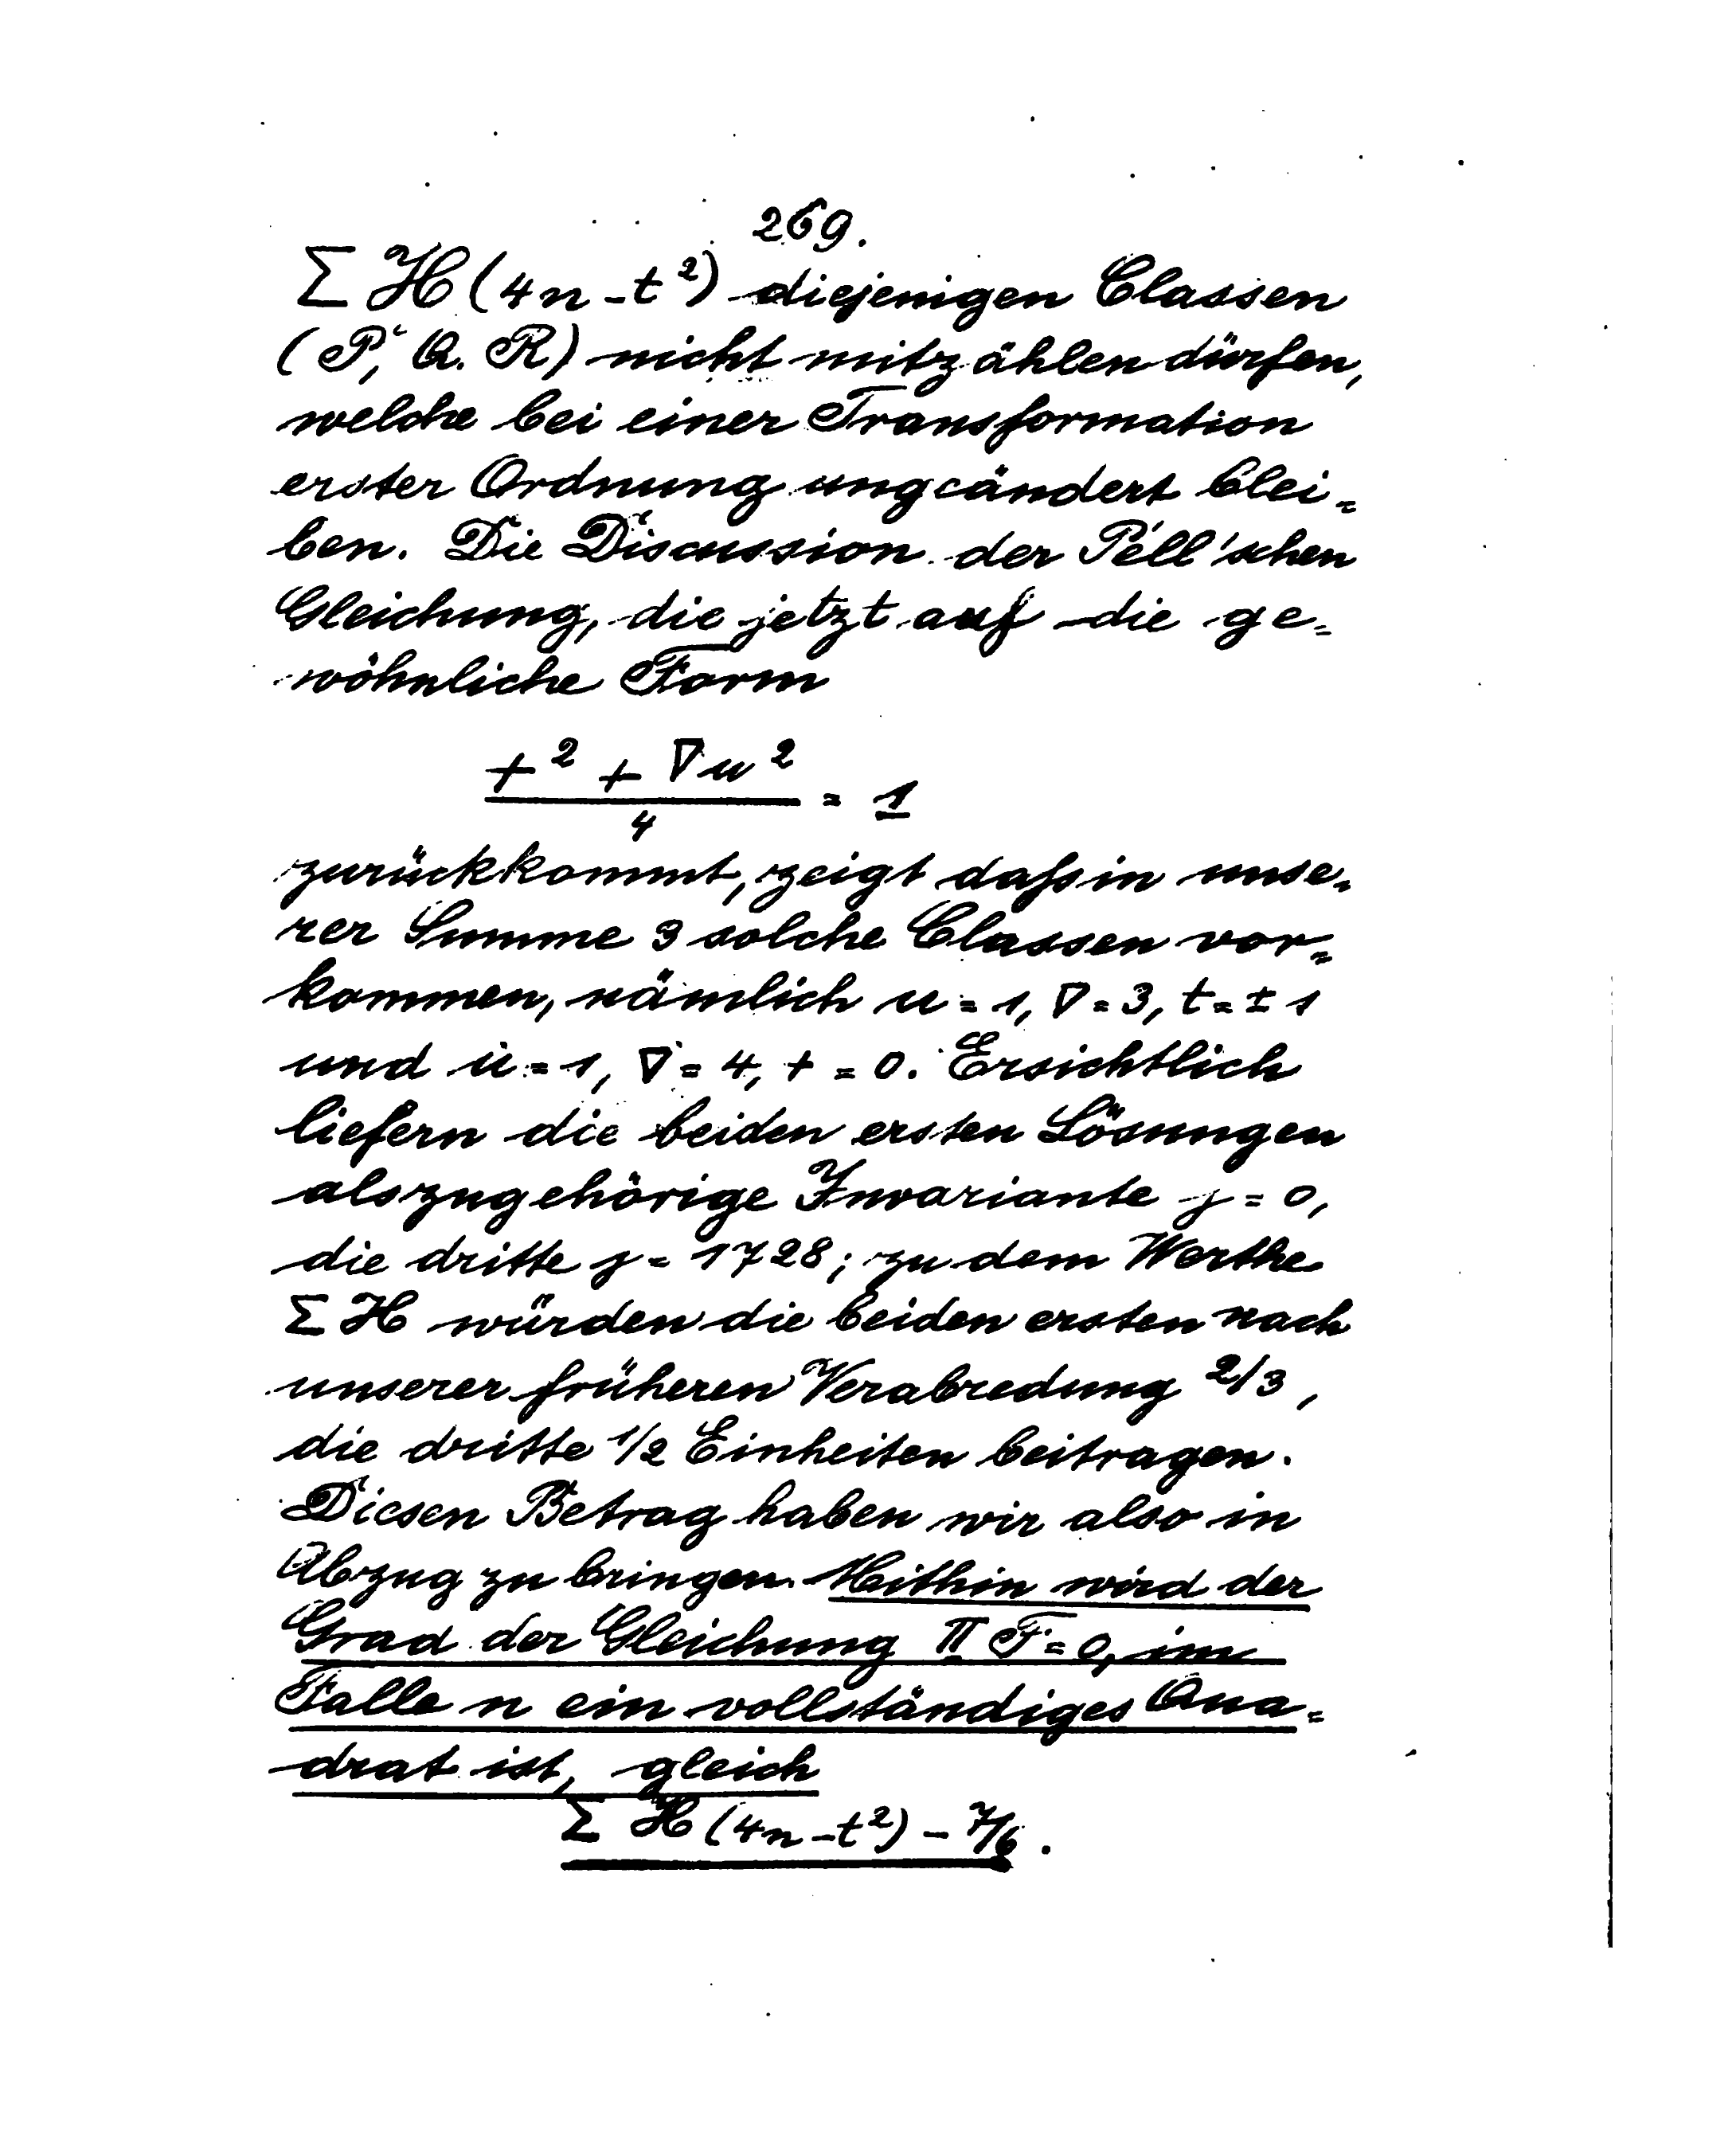 269.
Σ H (4n - t²) diejenigen Classen
(P, Q. R) nicht mitzählen dürfen,
welche bei einer Transformation
erster Ordnung ungeändert blei=
ben. Die Discussion der Pell'schen
Gleichung, die jetzt auf die ge=
wöhnliche Form
t² + ∇u²
4
= 1
zurückkommt, zeigt daß in unse=
rer Summe 3 solche Classen vor=
kommen, nämlich u = 1, ∇ = 3, t = ± 1
und u = 1, ∇ = 4, t = 0. Ersichtlich
liefern die beiden ersten Lösungen
als zugehörige Invariante j = 0,
die dritte j = 1728; zu dem Werthe
Σ H würden die beiden ersten nach
unserer früheren Verabredung 2/3,
die dritte 1/2 Einheiten beitragen.
Diesen Betrag haben wir also in
Abzug zu bringen. Mithin wird der
Grad der Gleichung Π F = 0, im
Falle n ein vollständiges Qua=
drat ist, gleich
Σ H (4n - t²) - 7/6.